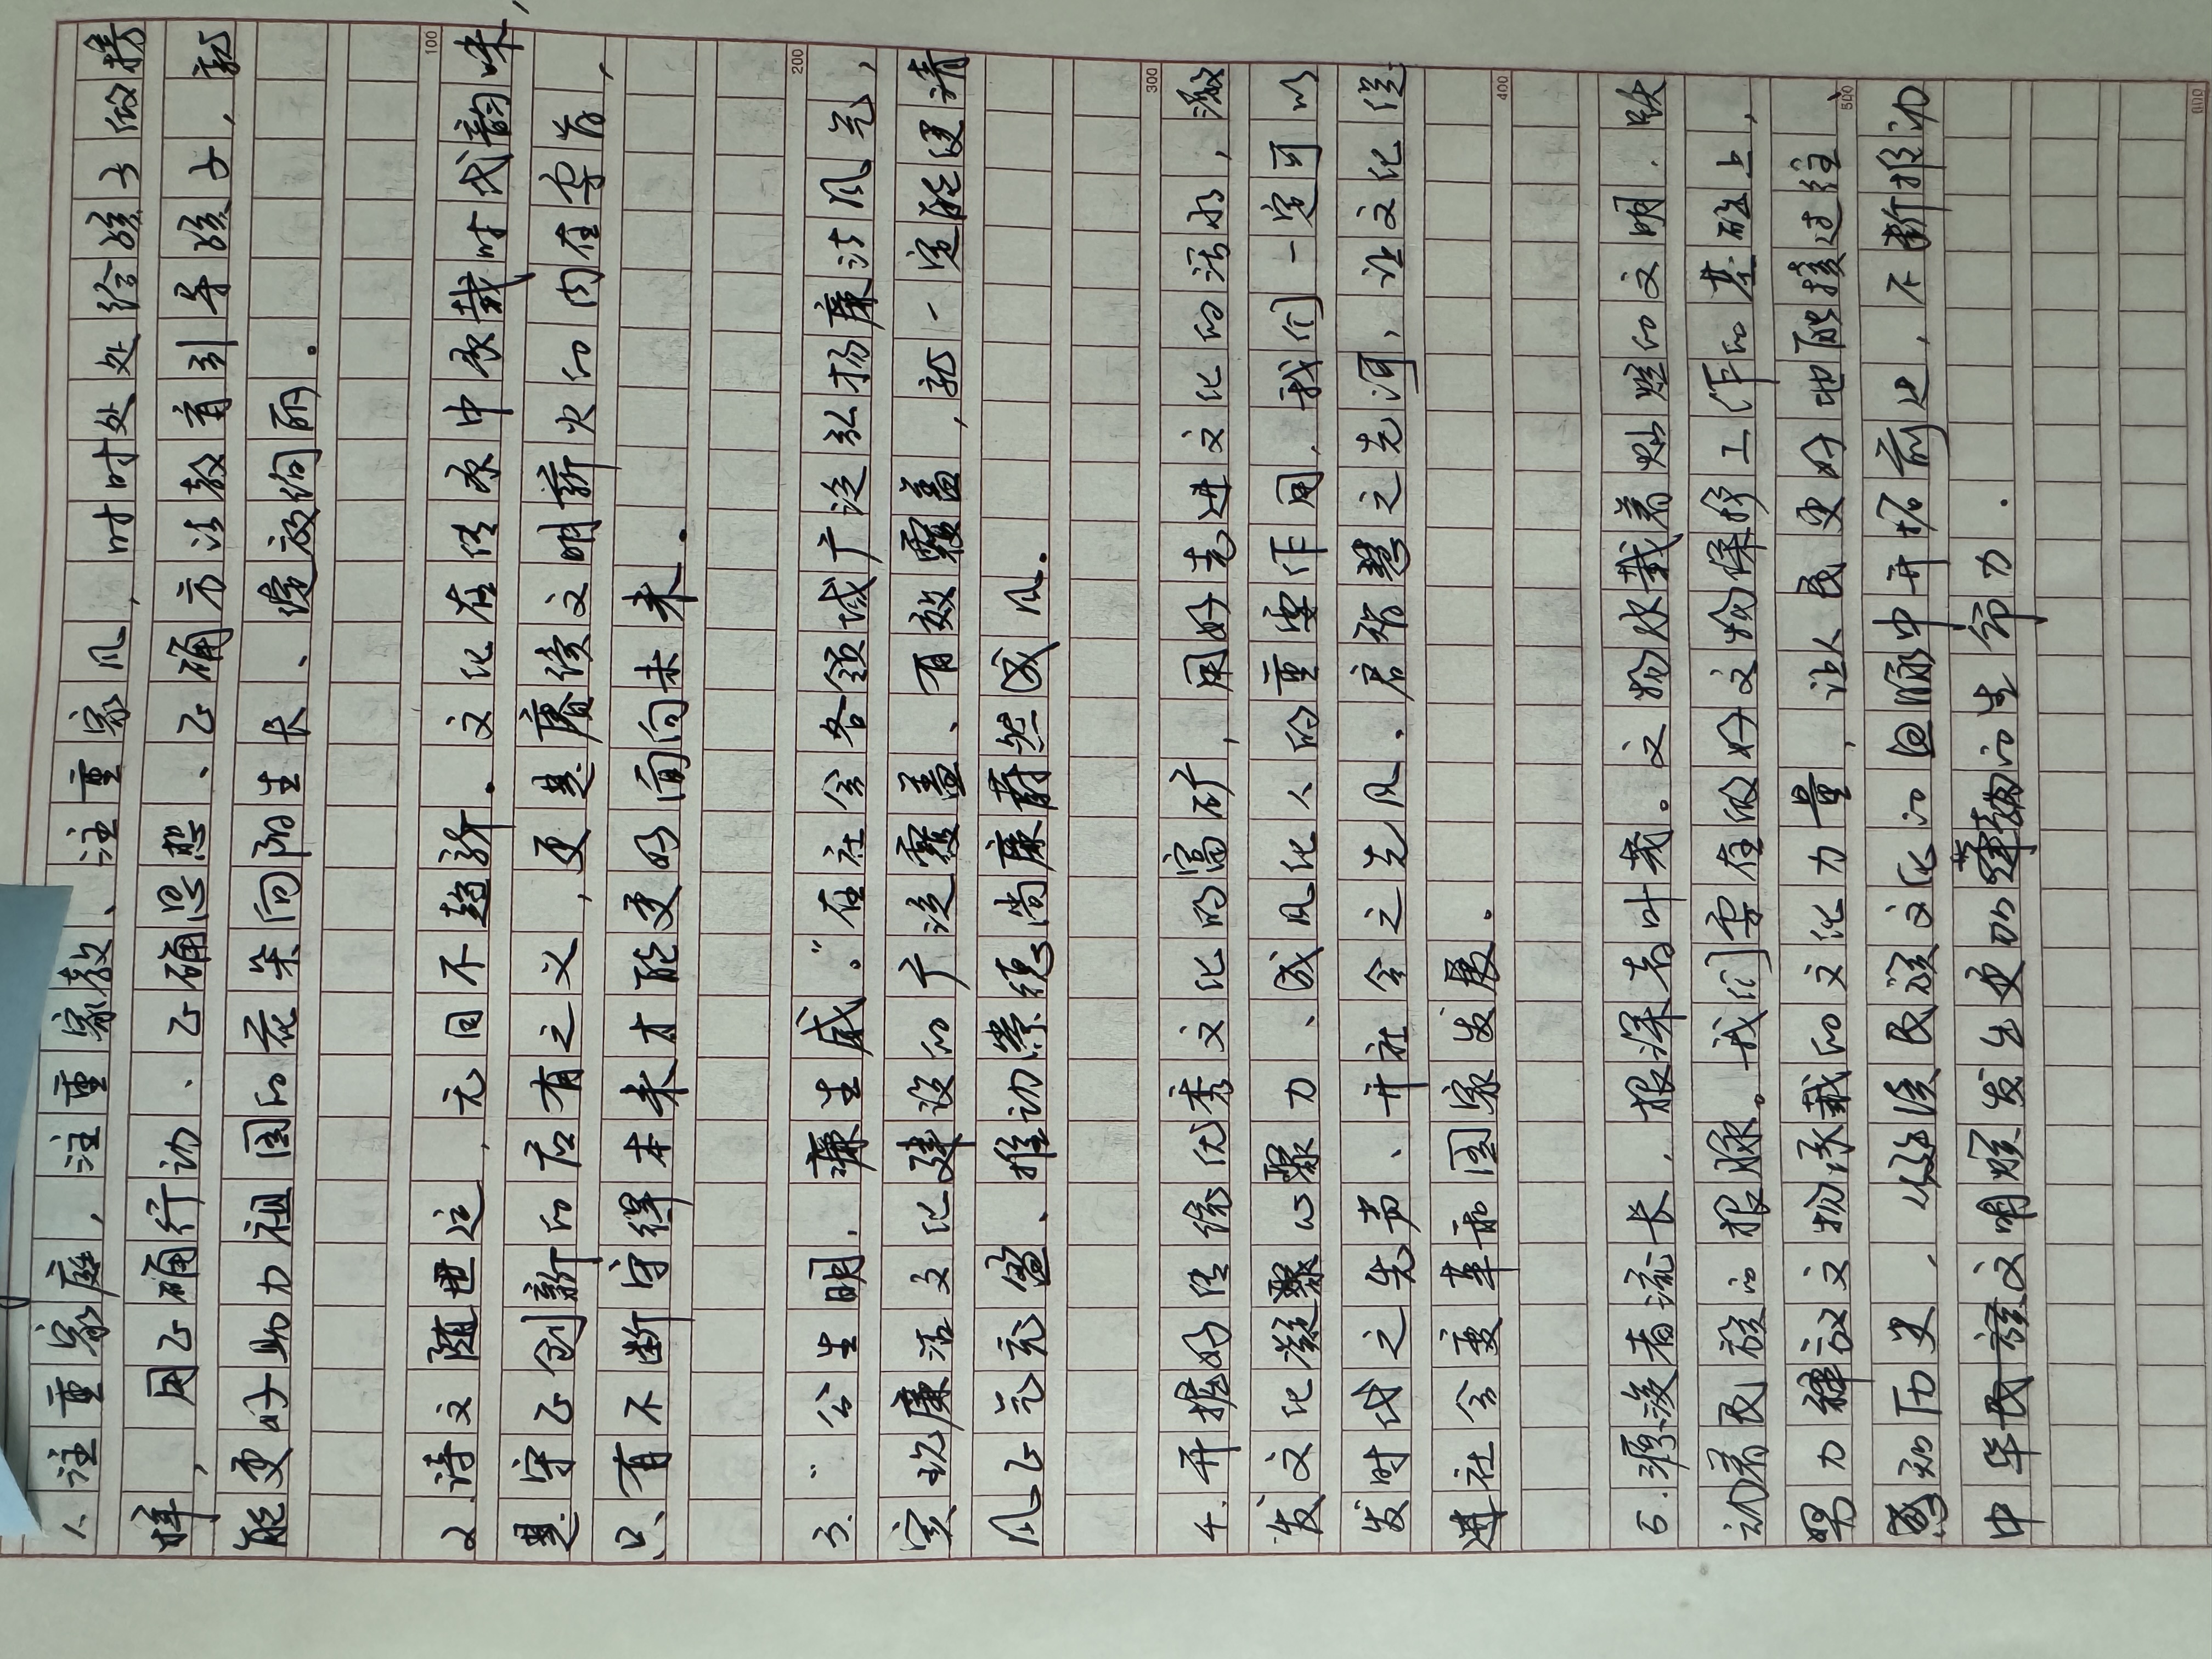 1.注重家庭,注重家教、注重家风,时时处处给孩子做榜
样,用正确行动、正确思想、正确方法教育引导孩子,就
能更好助力祖国的花朵向阳生长、绽放绚丽。
2.诗文随世运,无日不趋新。文化在传承中承载时代韵味,
是守正创新的应有之义,更是赓续文明薪火的内在字者,
只有不断守得本来才能更好面向未来。
3.“公生明,廉生威。”在社会各领域广泛弘扬廉洁风气,
实现廉洁文化建设的广泛覆盖、有效覆盖,就一定能使清
风正气充盈、推动崇德尚廉蔚然成风。
4.开掘好传统优秀文化的富矿,用好先进文化的活水,激
发文化凝聚心聚力、成风化人的重要作用,我们一定可以
发时代之先声、开社会之先风、启智慧之先河,让文化促
进社会变革和国家发展。
5.源浚者流长,根深者叶茂。文物承载着灿烂的文明,跃
动着民族的根脉。我们要在做好文物保护工作的基础上,
努力释放文物承载的文化力量,让人民更好地触摸过往、
感知历史,从延续民族文化的血脉中开拓前进,不断推动
中华民族文明焕发出更加蓬勃的生命力.
100
200
300
400
500
600